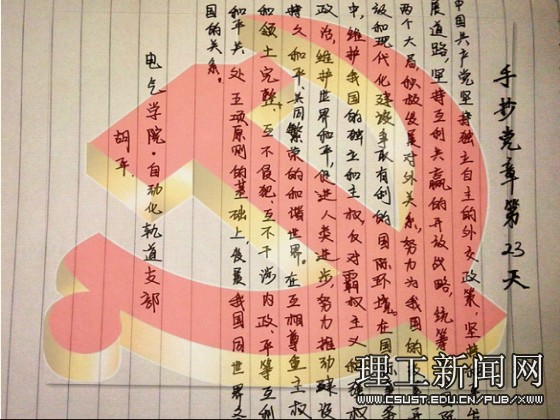 手抄党章第23天
中国共产党坚持独立自主的外交政策，坚持
展道路，坚持互利共赢的开放战略，统筹
两个大局，积极发展对外关系，努力为我国的
放和现代化建设争取有利的国际环境。在国际事务
中，维护我国的独立和主权，反对霸权主义和强权
政治，维护世界和平，促进人类进步，努力推动建设
持久和平、共同繁荣的和谐世界。在互相尊重主权
和领土完整、互不侵犯、互不干涉内政、平等互利
和平共处五项原则的基础上，发展我国同世界各
国的关系。
电气学院·自动化轨道支部
胡平.
理工新闻网
WWW.CSUST.EDU.CN/PUB/XWW/